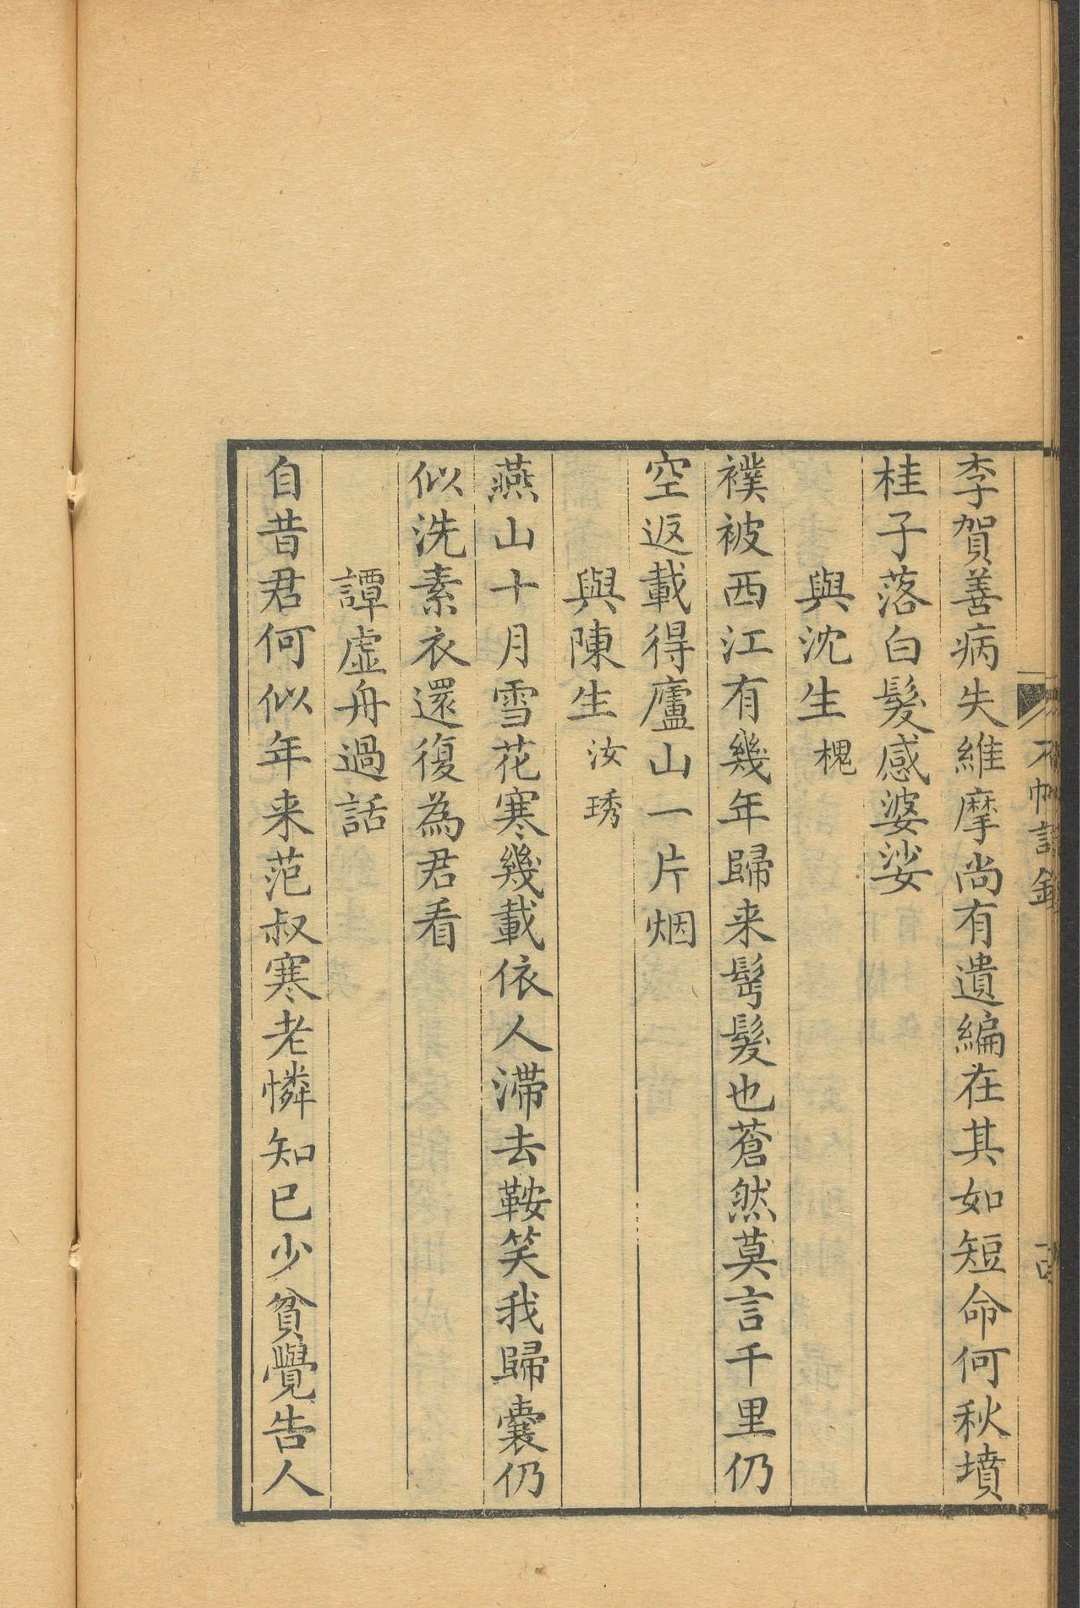 李賀善病失維摩尚有遺編在其如短命何秋墳
桂子落白髮感婆娑
與沈生槐
襆被西江有幾年歸来髩髮也蒼然莫言千里仍
空返載得廬山一片烟
與陳生汝琇
燕山十月雪花寒幾載依人滯去鞍笑我歸囊仍
似洗素衣還復為君看
譚虛舟過話
自昔君何似年来范叔寒老憐知已少貧覺告人